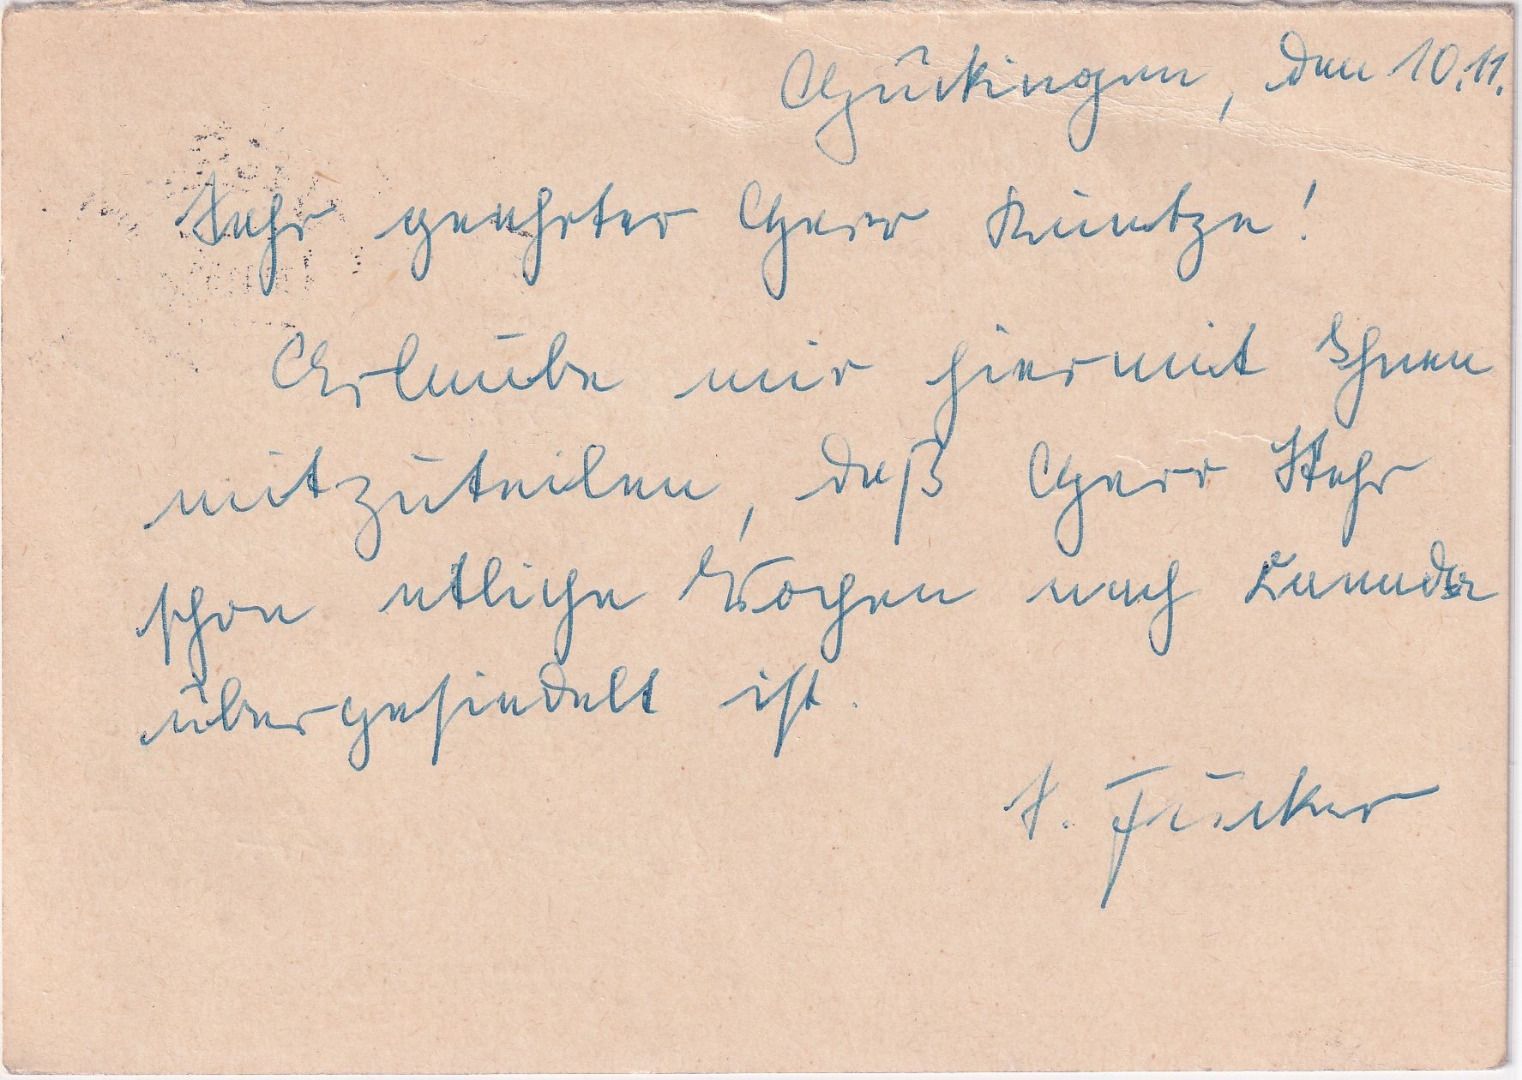 Hückingen, den 10.11.
Sehr geehrter Herr Kuntze!
Erlaube mir hiermit Ihnen
mitzuteilen, daß Herr Stehr
schon etliche Wochen nach Kanada
übergesiedelt ist.